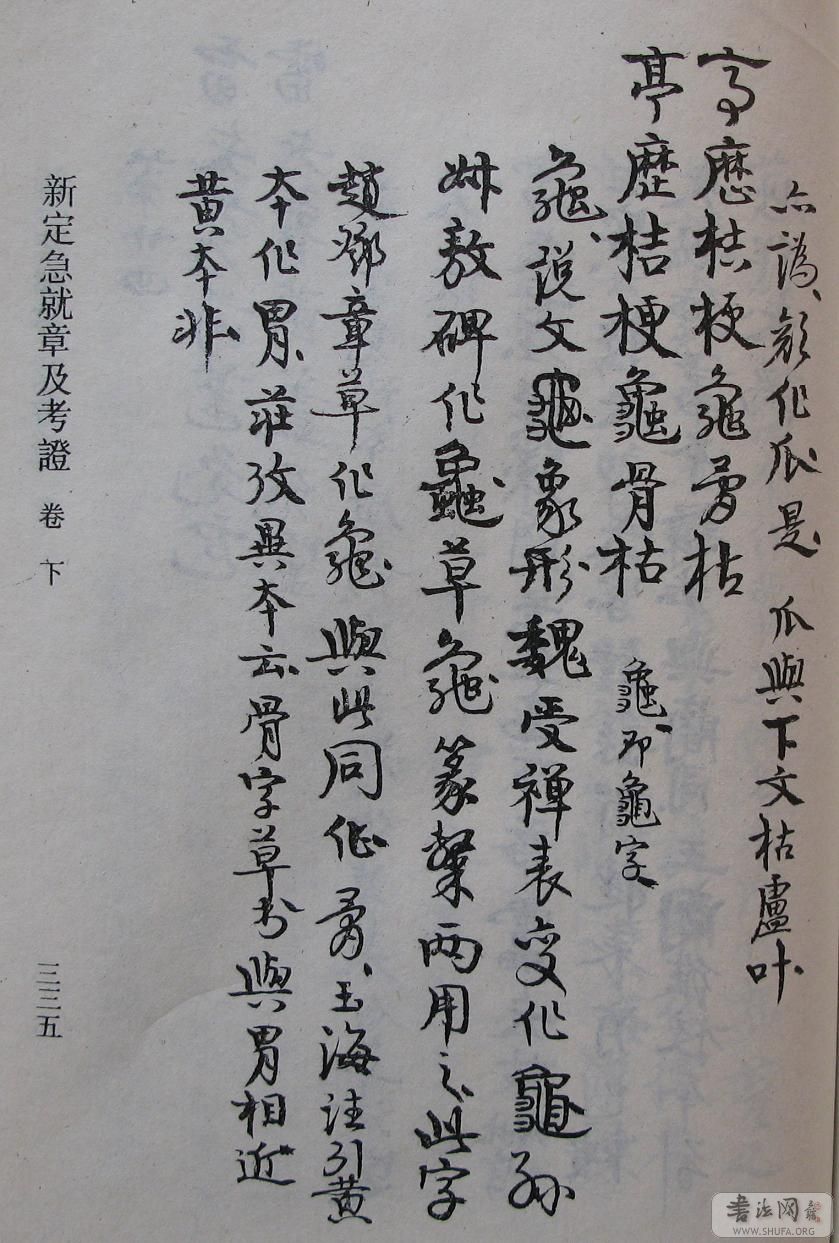 亦譌、顏作瓜是 瓜與下文枯盧叶
亭歷桔梗龜骨枯
亭歷桔梗龜骨枯 龜、即龜字
龜、説文龜象形魏受禪表变作龜孫
叔敖碑作龜草龜篆隸两用之此字
趙鄧章草作龜與此同作骨、玉海註引黄
本作胃、莊攷異本云骨字草书與胃相近
黄本非
新定急就章及考證 卷下
三三五
书法网
WWW.SHUFA.ORG